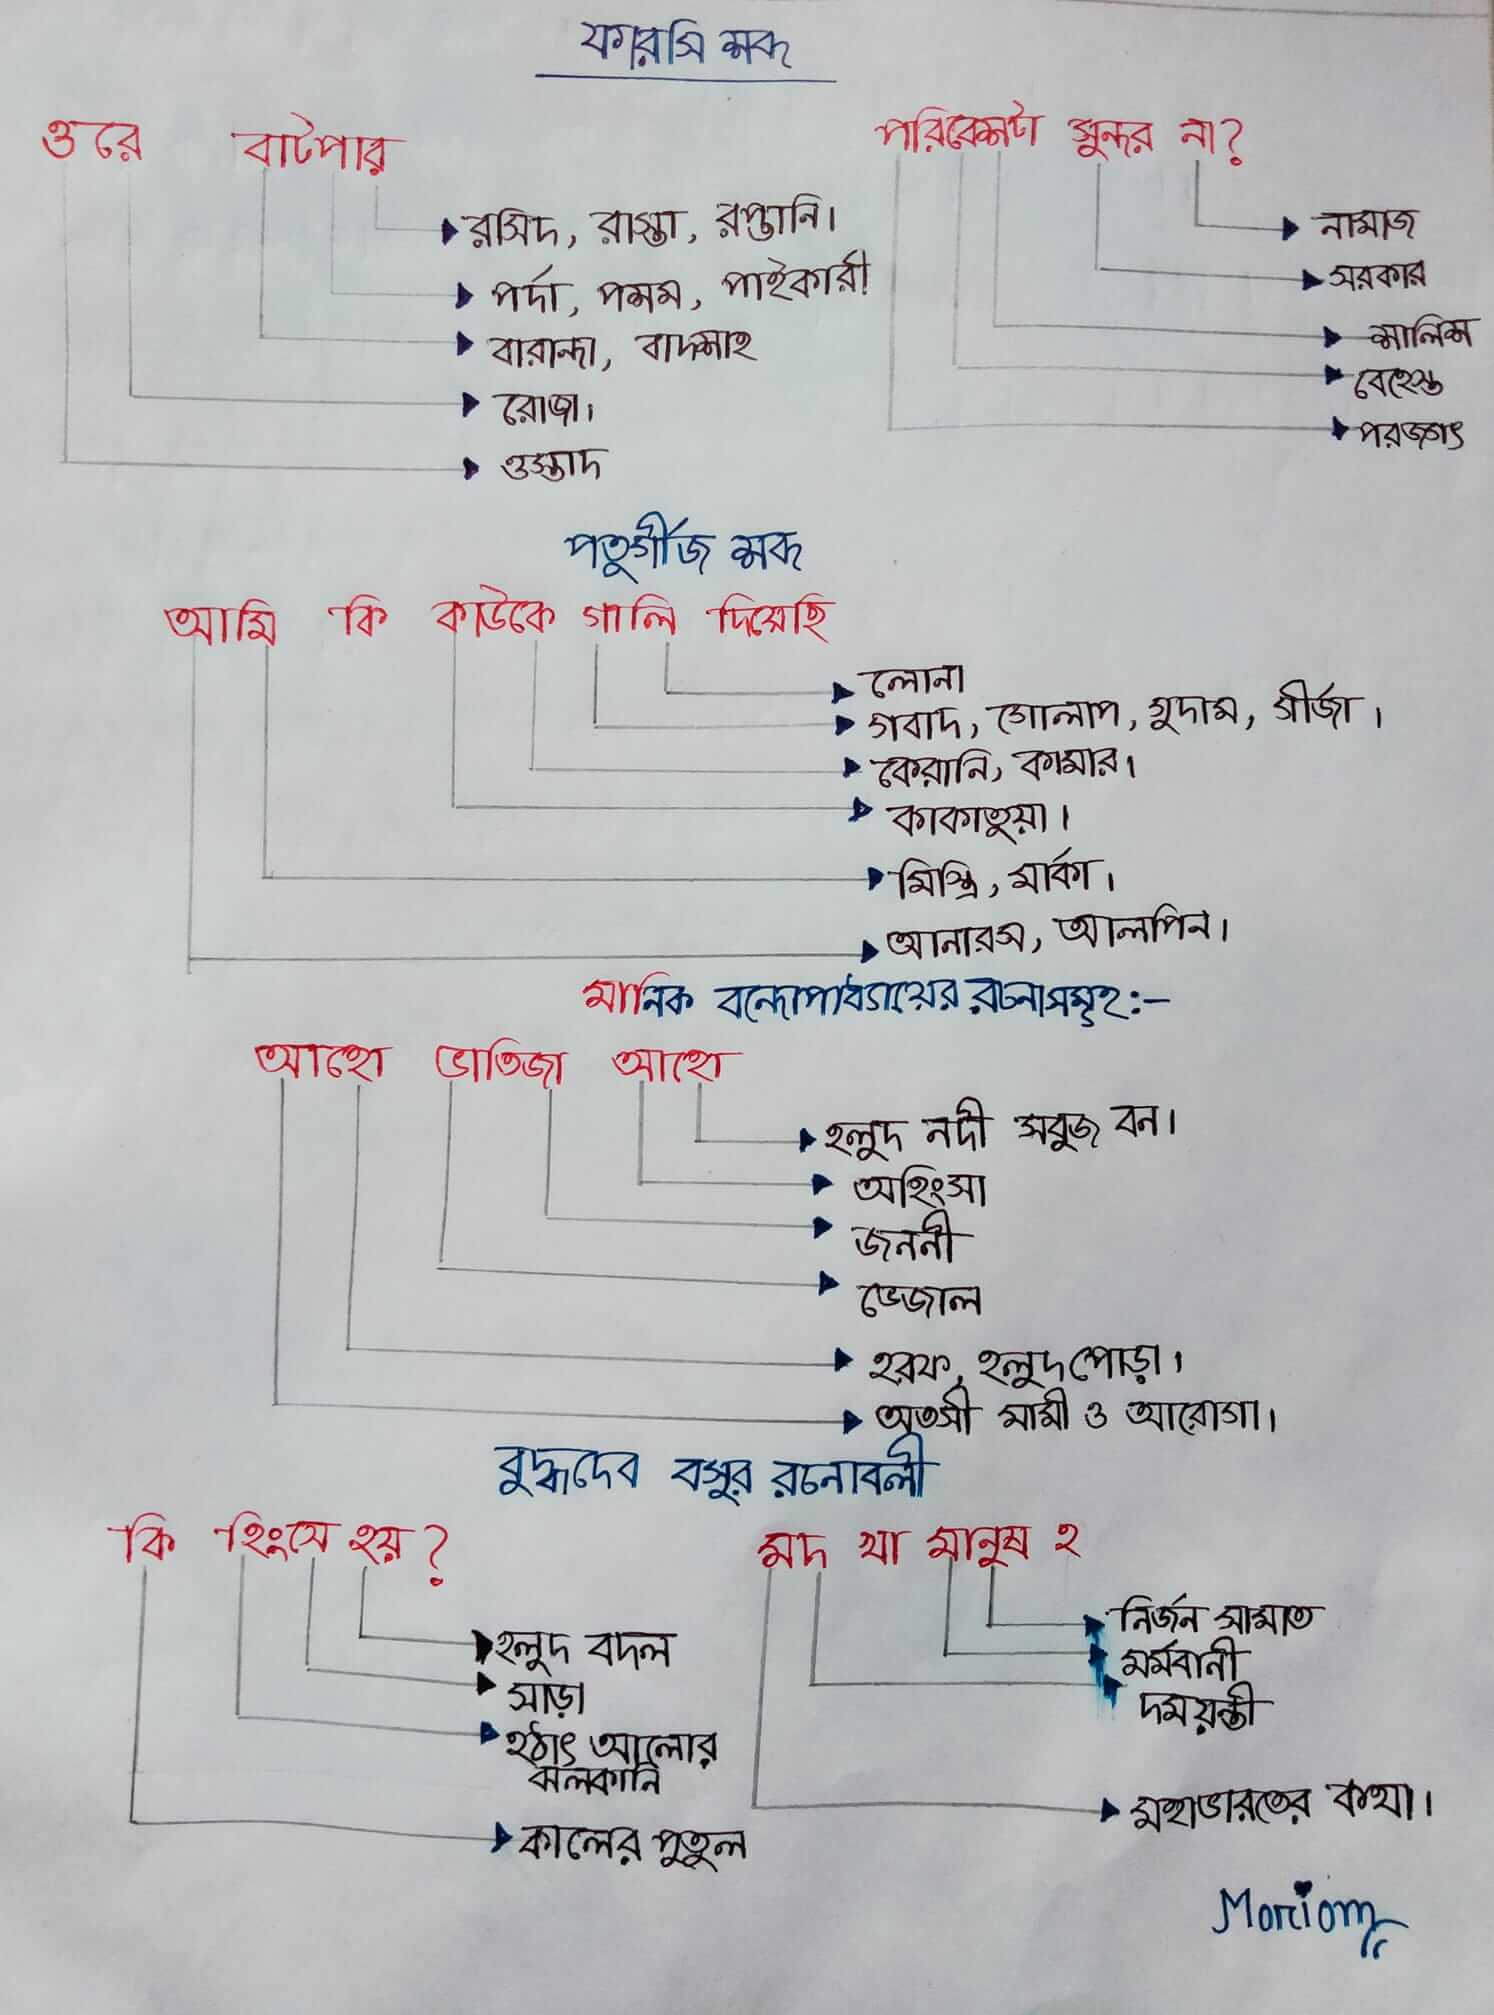 ফারসি শব্দ
ওরে বাটপার
রসিদ, রাস্তা, রপ্তানি।
পর্দা, পশম, পাইকারী
বারান্দা, বাদশাহ
রোজা।
ওস্তাদ
পরিবেশটা সুন্দর না?
নামাজ
সরকার
শালিশ
বেহেস্ত
পরজগৎ
পর্তুগীজ শব্দ
আমি কি কাউকে গালি দিয়েছি
লোনা
গবাদ, গোলাপ, গুদাম, গীর্জা।
কেরানি, কামার।
কাকাতুয়া।
মিস্ত্রি, মার্কা।
আনারস, আলপিন।
মানিক বন্দোপাধ্যায়ের রচনাসমূহ:-
আহো ভাতিজা আহো
হলুদ নদী সবুজ বন।
অহিংসা
জননী
ভেজাল
হরফ, হলুদপোড়া।
অতসী মামী ও আরোগা।
বুদ্ধদেব বসুর রচনাবলী
কি হিংসে হয়?
হলুদ বদল
সাড়া
হঠাৎ আলোর
ঝলকানি
কালের পুতুল
মদ খা মানুষ হ
নির্জন সামাত
মর্মবানী
দময়ন্তী
মহাভারতের কথা।
Moriom